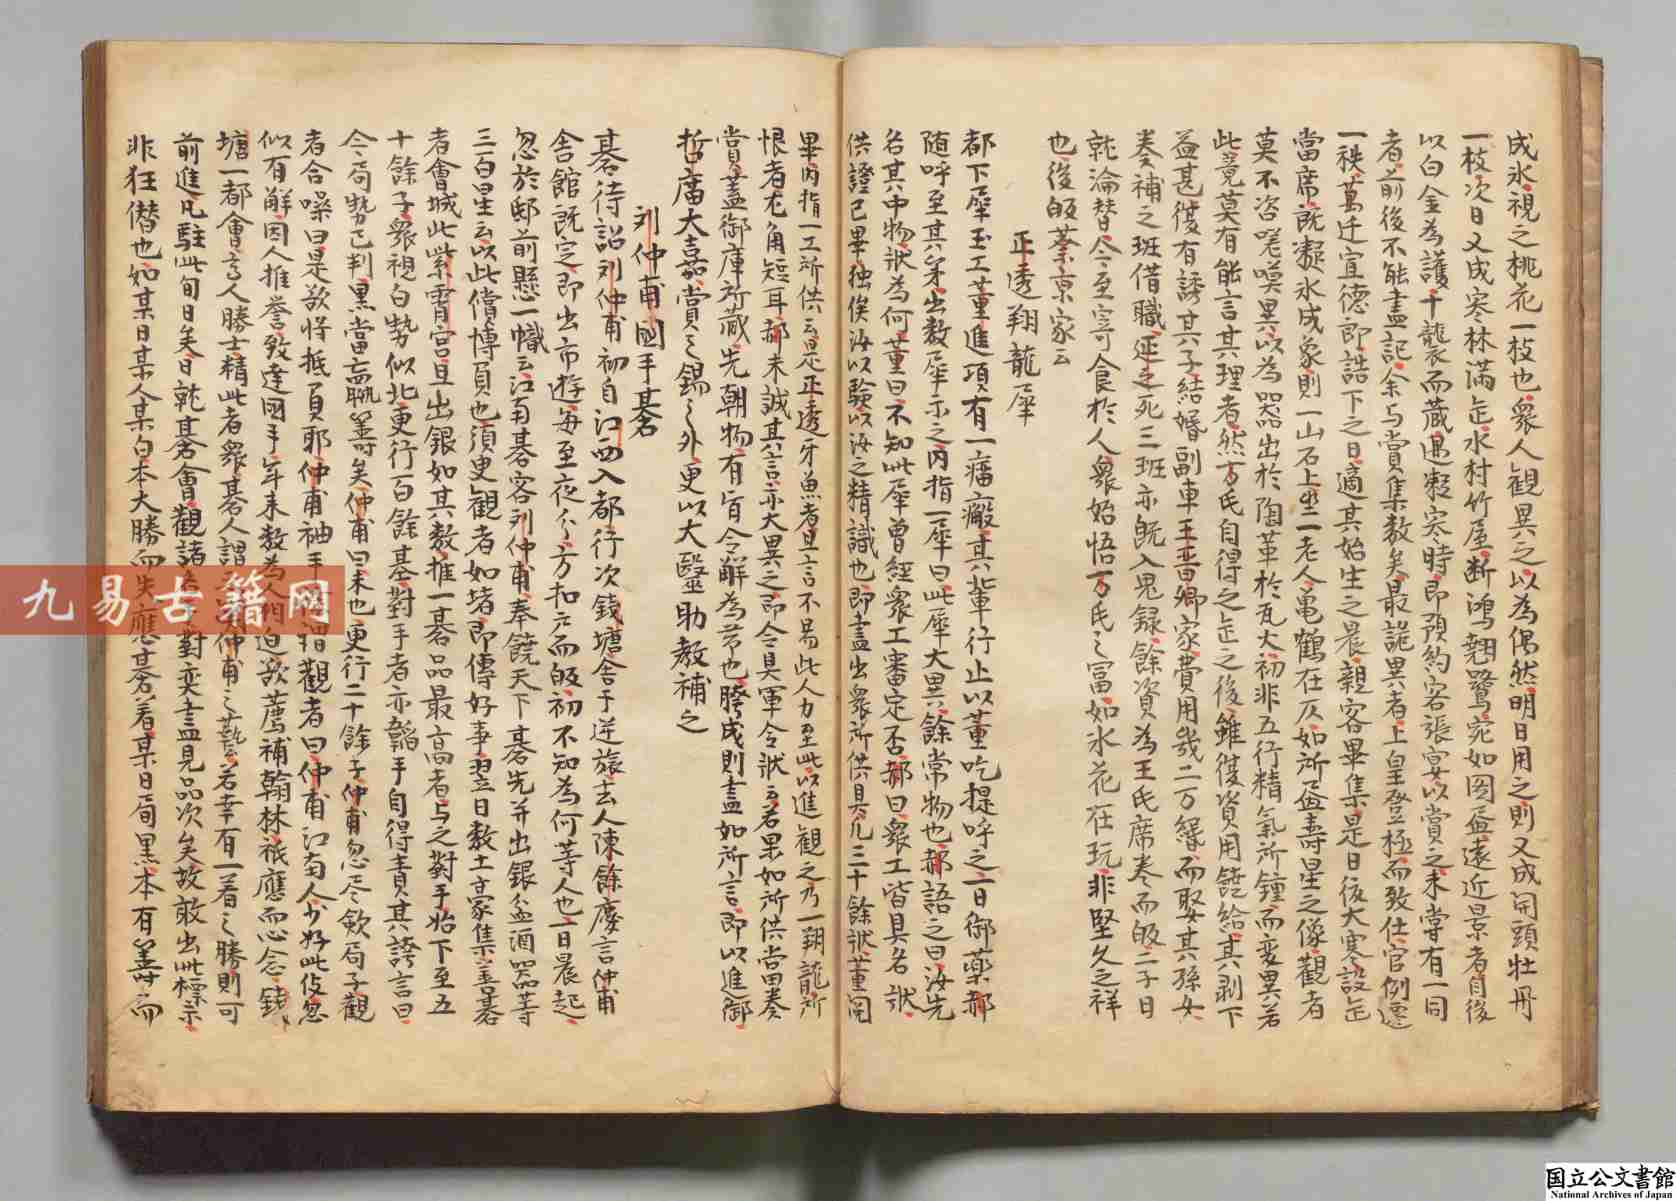 成氷視之桃花一枝也衆人観異之以為偶然明日用之則又成開頭牡丹
一枝次日又成寒林滿缶水村竹屋断鴻翹鷺宛如図画遠近景者自後
以白金為護十龍衣而蔵遇凝寒時即預約客張宴以賞之未嘗有一同
者前後不能盡記余与賞集数矣最詭異者上皇登極而致仕官例遷
一秩萬迁宣德即誥下之日適其始生之晨親客畢集是日復大寒設缶
當席既凝氷成象則一山石上坐一老人亀鶴在仄如所画壽星之像觀者
莫不咨嗟嘆異以為器出於陶革於瓦大初非五行精氣所鍾而变異若
此竟莫有能言其理者然万氏自得之缶之後雖復資用饒給其剥下
益甚後有誘其子結婚副車王晋卿家費用幾二万緡而娶其孫女
奏補之班借職延之死三班亦既入鬼録餘資為王氏席巻而皈二子日
就淪替今至寄食於人衆始悟万氏之冨如氷花在玩非堅久之祥
也後皈蔡京家云
正透翔龍犀
都下犀玉工董進項有一瘤癜其輩行止以董吃提呼之一日御藥郝
随呼至其第出数犀示之内指一犀曰此犀大異餘常物也郝語之曰汝先
名其中物状為何董曰不知此犀曽経衆工審定否郝曰衆工皆具名状
供證已畢独俟汝以驗以汝之精識也即盡出衆所供具凡三十餘状董閲
畢内指一工所供云是正透牙魚者且言不易此人力至此以進觀之乃一翔龍所
恨者尤角短耳郝未誠其言亦大異之即令具軍令状云若果如所供當奏
賞蓋御庫所蔵先朝物有㫖令解為帯也胯成則盡如所言即以進御
哲廣大嘉賞之錫之外更以大醫助教補之
刘仲甫國手碁
碁待詔刘仲甫初自江西入都行次錢塘舎于逆旅去人陳餘慶言仲甫
舎館既定即出市遊毎至夜分方扣戸而皈初不知為何等人也一日晨起
忽於邸前懸一幟云江南碁客刘仲甫奉饒天下碁先并出銀盆酒器等
三百星云以此償博負也須臾觀者如堵即傳好事翌日数土豪集善碁
者會城此紫霄宮且出銀如其数推一碁品最高者与之對手始下至五
十餘子衆視白勢似北更行百餘基對手者亦韜手自得責其誇言曰
今局勢已判黒當贏籌矣仲甫曰未也更行二十餘子仲甫忽尽歛局子觀
者合噪曰是欲将抵負耶仲甫袖手觀者曰仲甫江南人少好此伎忽
似有解因人推誉致達國手年来数為人迫欲薦補翰林祗應而心念錢
塘一都會高人勝士精此者衆碁人謂仲甫之藝若幸有一着之勝則可
前進凡駐此旬日矣日就碁會觀諸對奕盡見品次矣故敢出此標示
非狂僣也如某日某人某白本大勝而失應碁着某日局黒本有籌而
九易古籍网
国立公文書館
National Archives of Japan